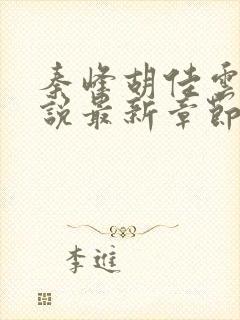 秦峰胡佳雲
說最新章節
李進